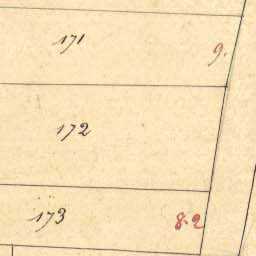 171 9.
172
173 8.2